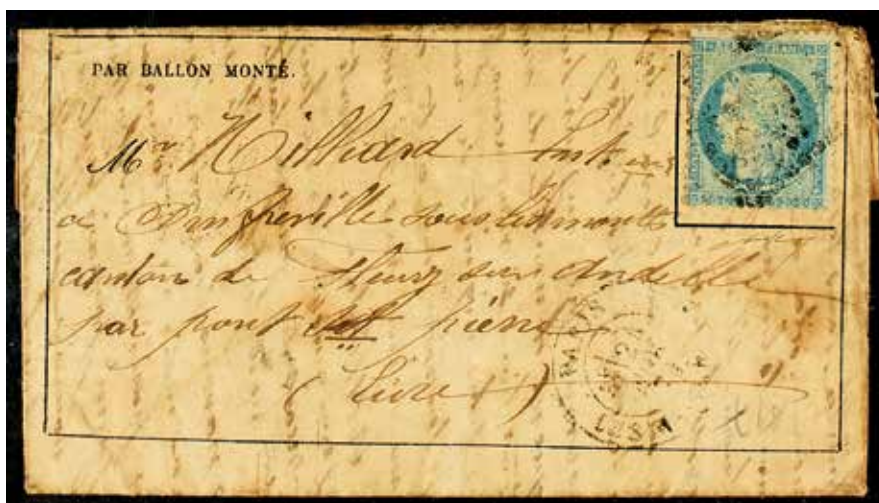 PAR BALLON MONTÉ.
Mr Hilliard
a Amfreville sous les monts
canton de Fleury sur andelle
par pont st pierre
(Eure)
PARIS